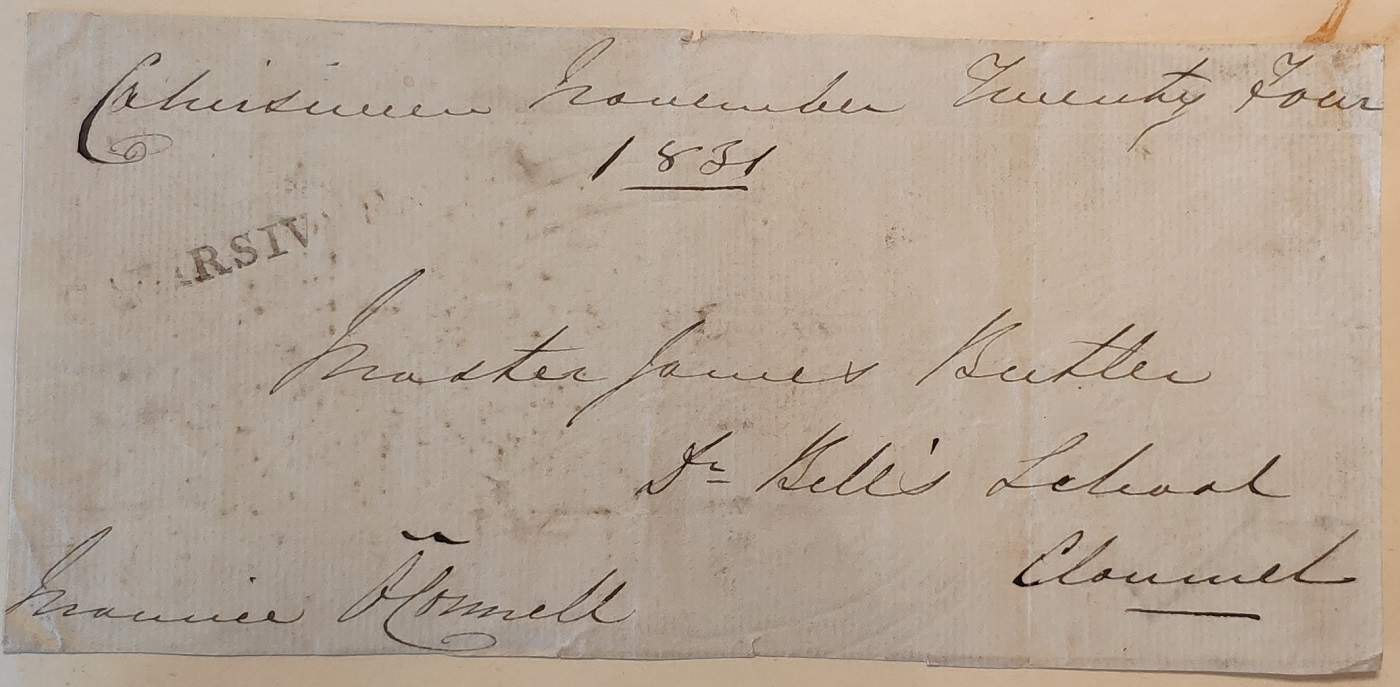 Cahirsiveen November Twenty Four
1831
ARSIV
Master James Butler
Dr Bell's School
Clonmel
Maurice O'Connell